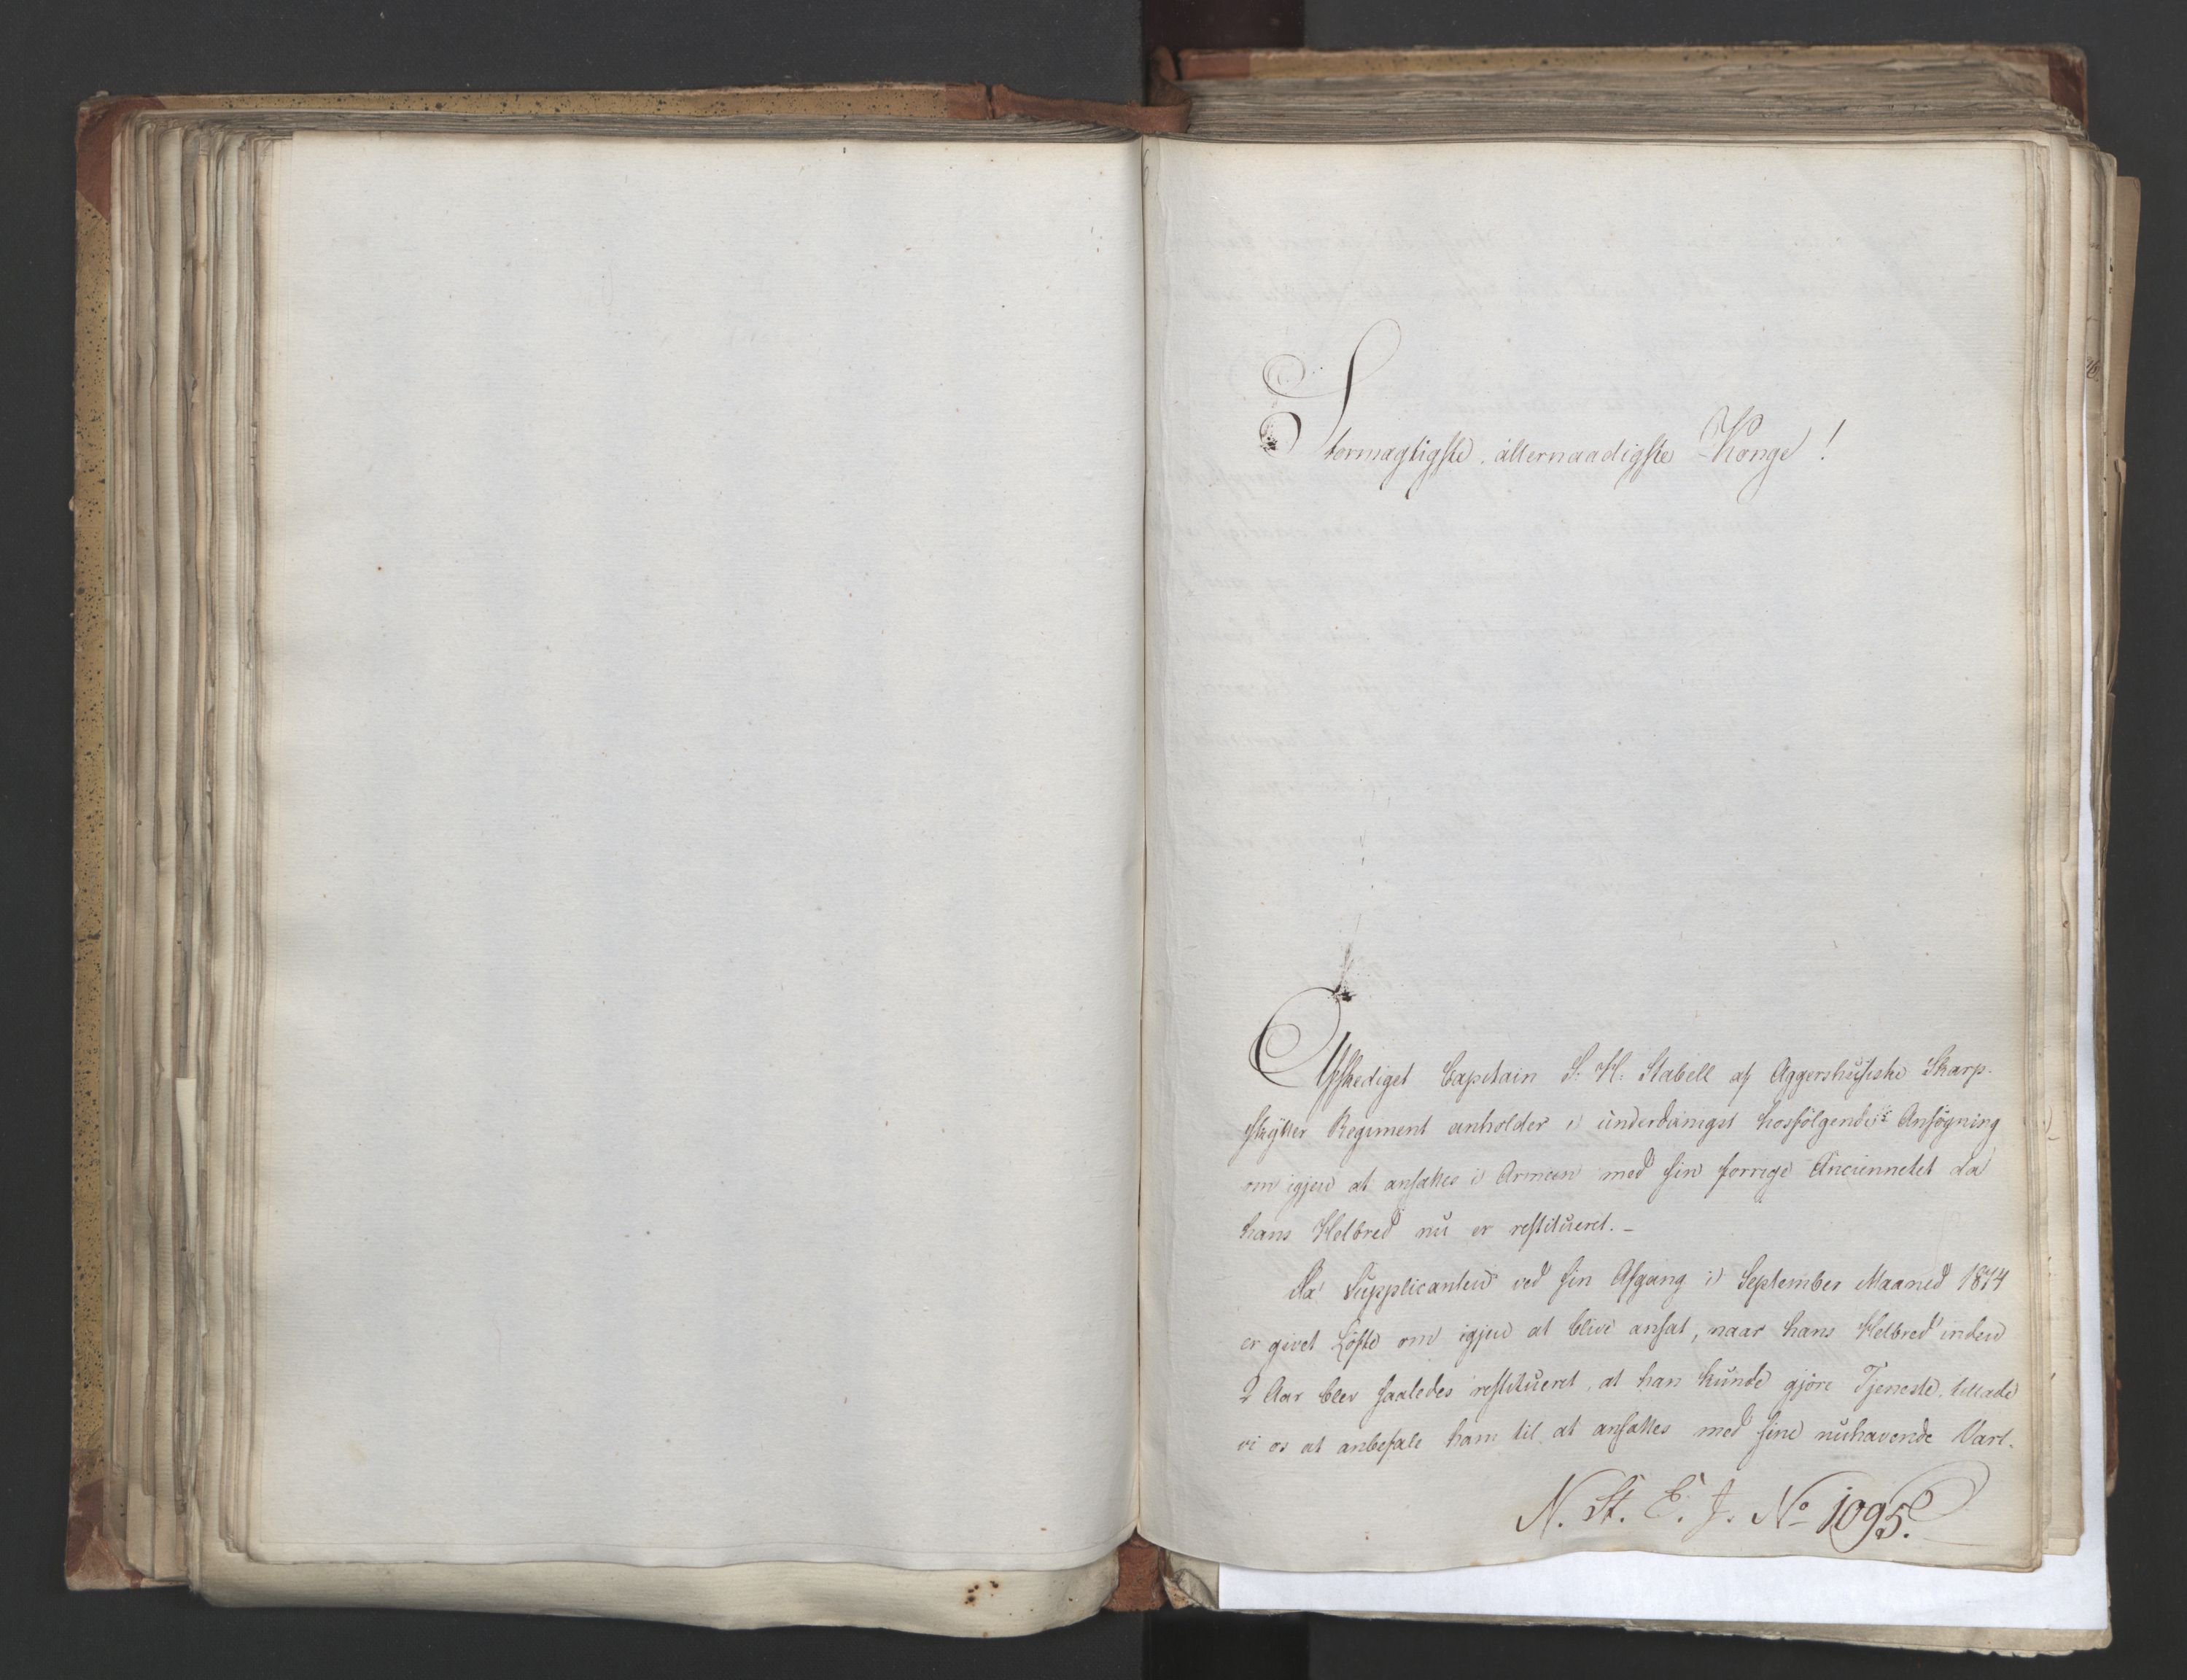 Stormægtigste, allernaadigste Konge!
Afskediget Capitain S: H: Stabell af Aggershusiske Skarp-
skytter Regiment anholder i underdanigst hosfølgende Ansøgning
om igjen at ansættes i Armeen med sin forrige Anciennetet da
hans Helbred nu er restitueret. –
Da Supplicanten ved sin Afgang i September Maaned 1814
er givet Løfte om igjen at blive ansat, naar hans Helbred inden
2 Aar blev saaledes restitueret, at han kunde gjøre Tjeneste, tillade
vi os at anbefale ham til at ansættes med sine nuhavende Vart-
N. St. E. J. No 1095.